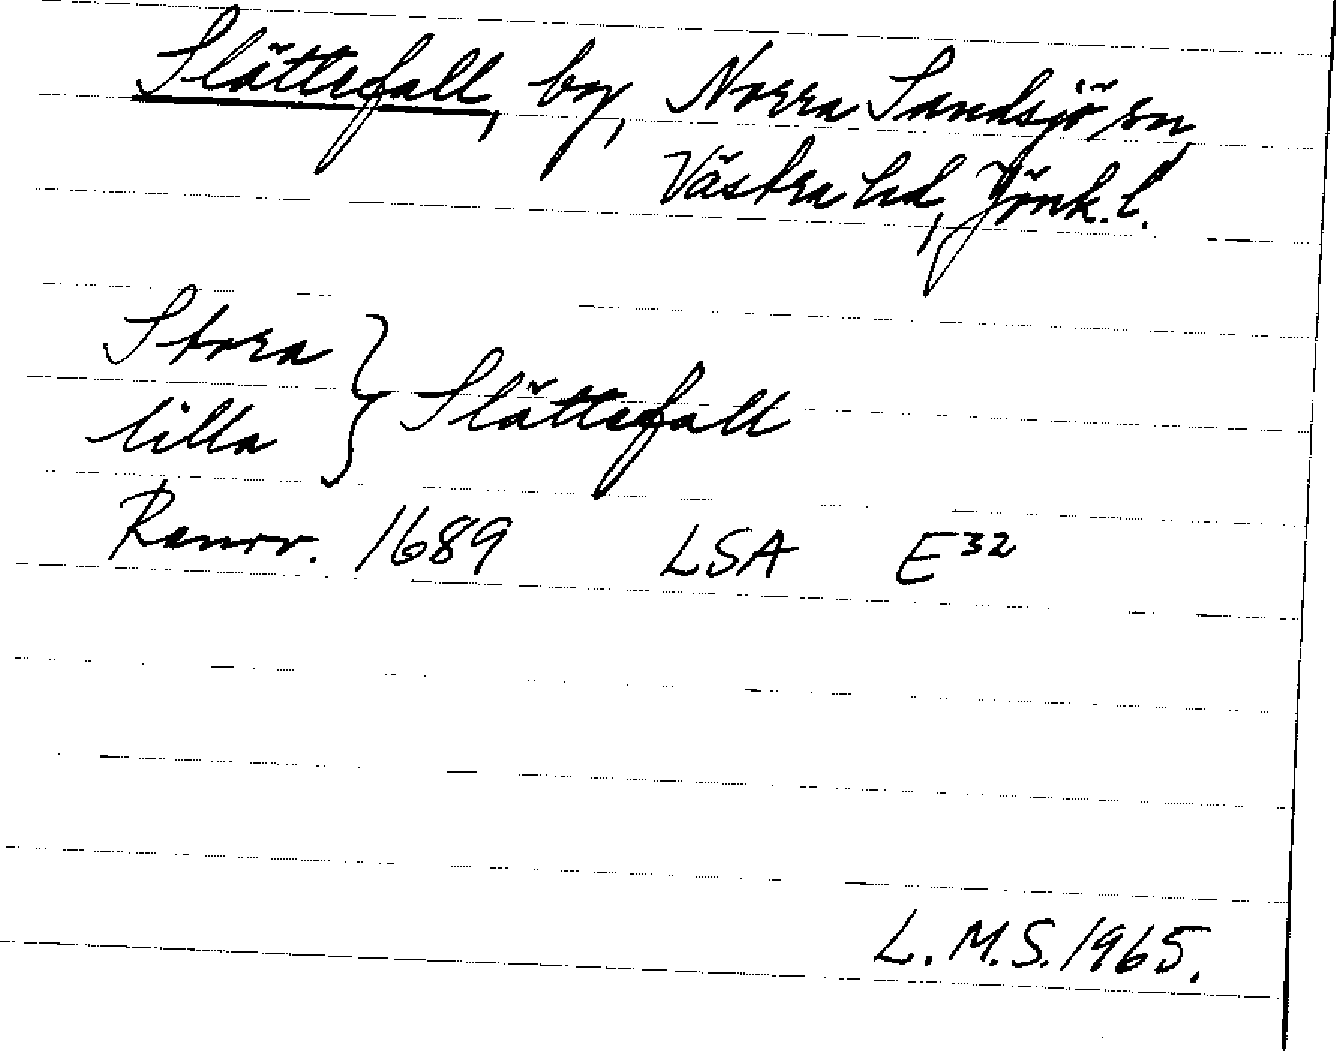 Slättefall, by, Norra Sandsjö sn,
Västra hd, Jönk. l.
Stora
lilla } Slättefall
Ranrv. 1689 LSA E32
L.M.S. 1965.